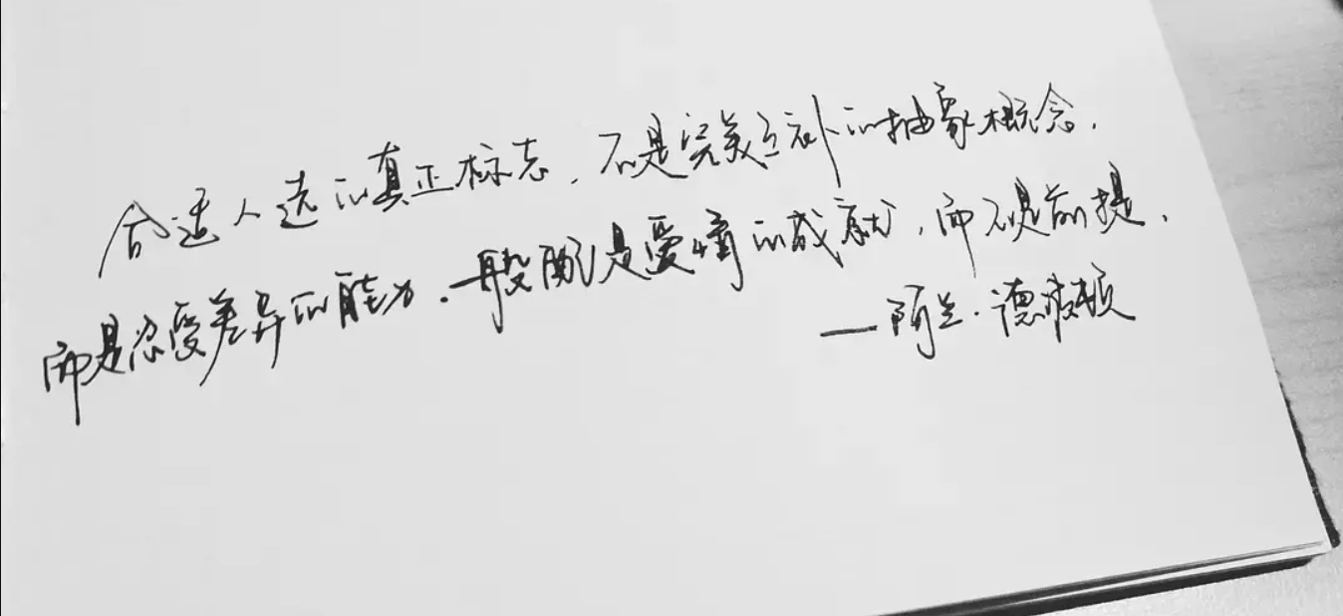 合适人选的真正标志，不是完美互补的抽象概念，
而是忍受差异的能力。般配是爱情的成就，而不是前提。
——阿兰·德波顿